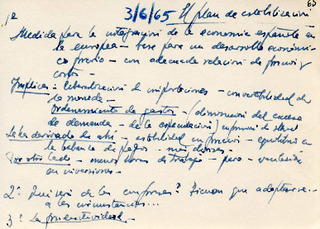 1º 3/6/65 El plan de estabilización 63
Medida para la integración de la economía española en
la europea - base para un desarrollo económi-
co previo - con adecuada relación de precios y
costos -
Implica: liberalización de importaciones - convertibilidad de
la moneda -
ordenamiento de gastos - (disminución del exceso
de demanda - de la especulación)
estabilidad en precios - equilibrio en
la balanza de pagos - más divisas -
Por otro lado - menos horas de trabajo - pero - ventajas
en inversiones -
2º de las empresas? Tienen que adaptarse -
a las circunstancias...
3º La productividad -